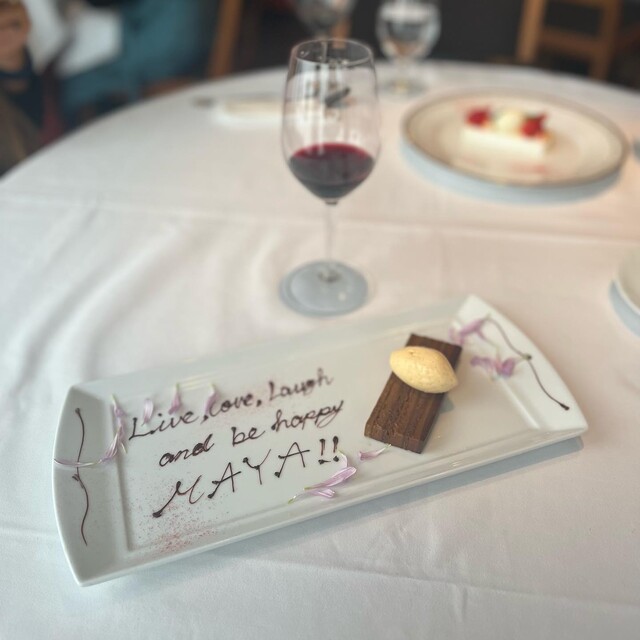 Live, love, Laugh
and be happy
MAYA!!